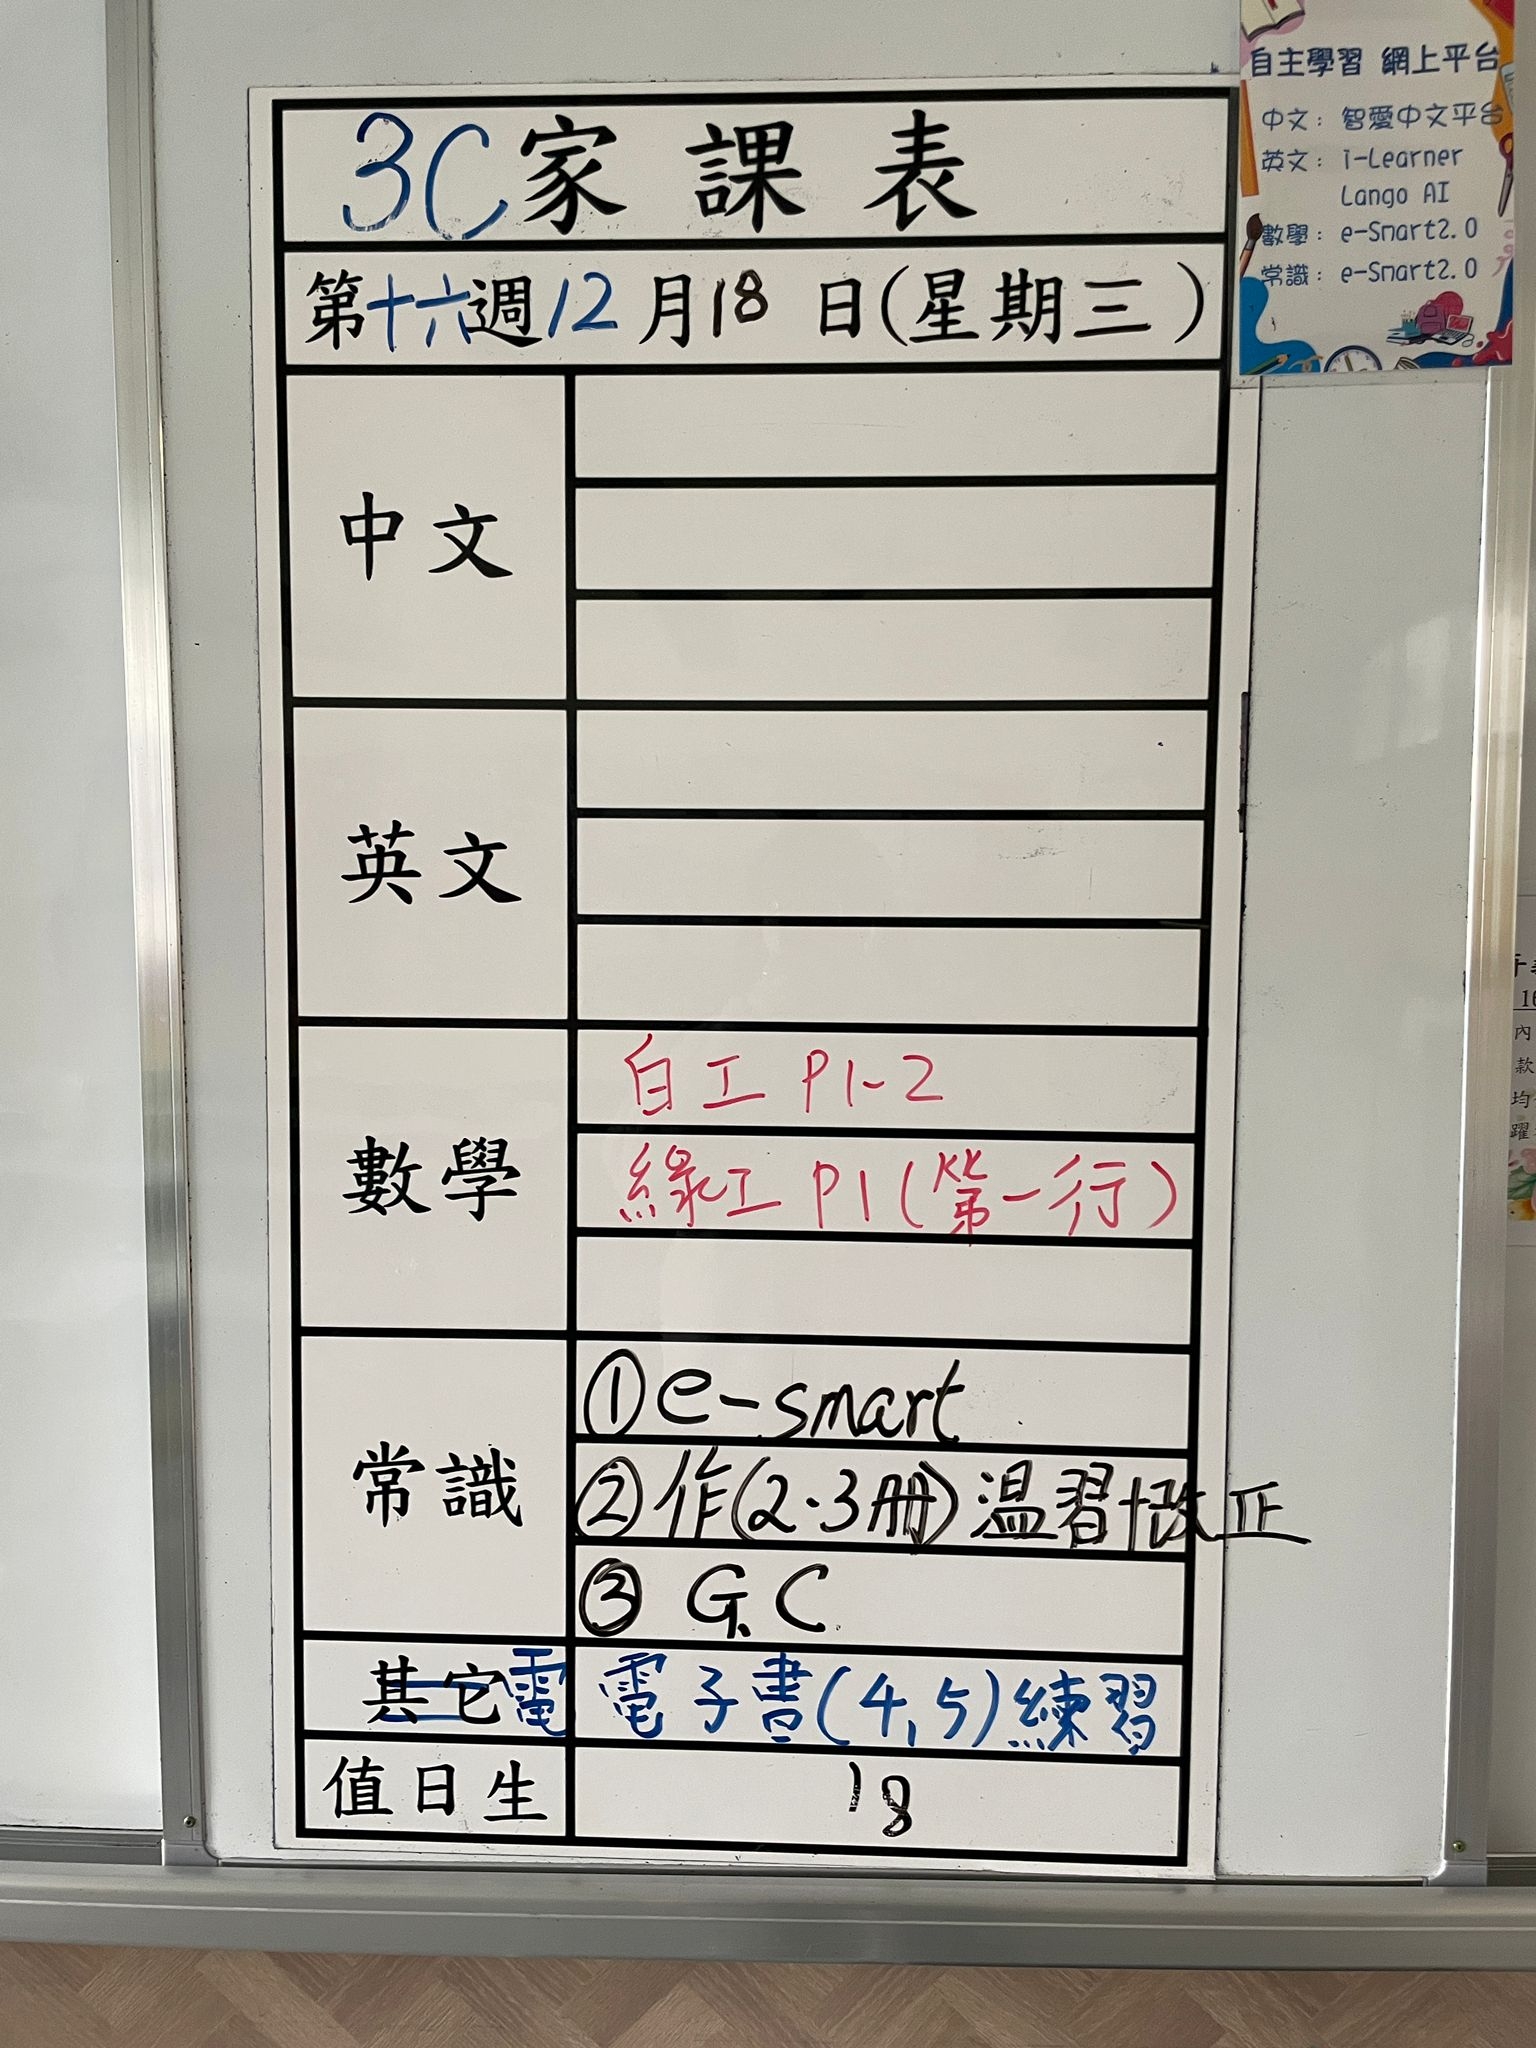 自主學習 網上平台
中文: 智愛中文平台
英文: i-Learner
Lango AI
數學: e-Smart2.0
常識: e-Smart2.0
3C家課表
第十六週12月18日(星期三)
中文
英文
數學
白工 P1-2
綠工 P1(第一行)
常識
①e-smart
②作(2.3冊)溫習+改正
③ G.C
其它電 電子書(4,5)練習
值日生 18
16
內
款
均
躍